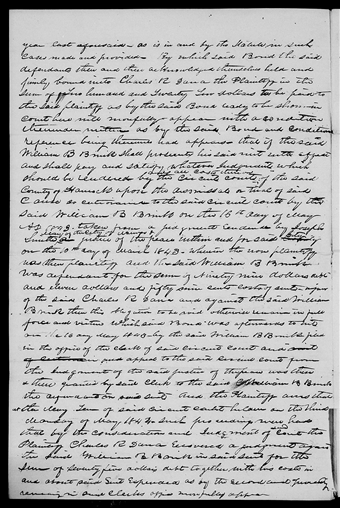 year last aforesaid - as is in and by the Statute in such
Cases made and provided - By which said Bond the said
defendants then and there acknowledged themselves held and
firmly bound unto Charles R Dana the Plaintiff in the
Sum of hundred and Twenty Two dollars to be paid to
the said plaintiff as by the said Bond ready to be shown in
Court here will more fully appear with a condition
thereunder written as by the said Bond and Condition
reference being thereunto had appears that if the said
William B Brink shall prosecute his suit with effect
and shall pay and satisfy whatever Judgment which
should be rendered by the Circuit Court of the said
County of Hancock upon the dismissal or trial of said
Cause as entered into to the said circuit court by the
said William B Brink on the 16th day of May
AD taken from a judgment rendered by Joseph
Smith justice of the peace within and for said
on the day of March 1843. Wherein the now plaintiff
was then plaintiff and the said William B Brink
was defendant for the sum of Ninety nine dollars debt
and eleven dollars and fifty nine cents costs of suit in favor
of the said Charles R Dana and against the said William
Brink then this obligation to be void otherwise remain in full
force and virtue which said Bond was afterwards to wit
on the 16 day May by the said William B Brink filed
in the office of the clerk of said Circuit Court and
was appeal to the said Circuit Court from
the Judgment of the said justice of the peace was then
& there granted by said Clerk to the said William B Brink
the defendant in said suit And the Plaintiff avers that
at the May Term of said Circuit Court holden on the third
Monday of May 1843 such proceedings were had
that by the Consideration and Judgment of the
Plaintiff Charles R Dana recovered a judgment against
the said William B Brink in said suit for the
sum of Twenty five dollars debt together with his costs in
and about said suit Expended as by the record and proceedings
remaining in said Clerks office more fully appear